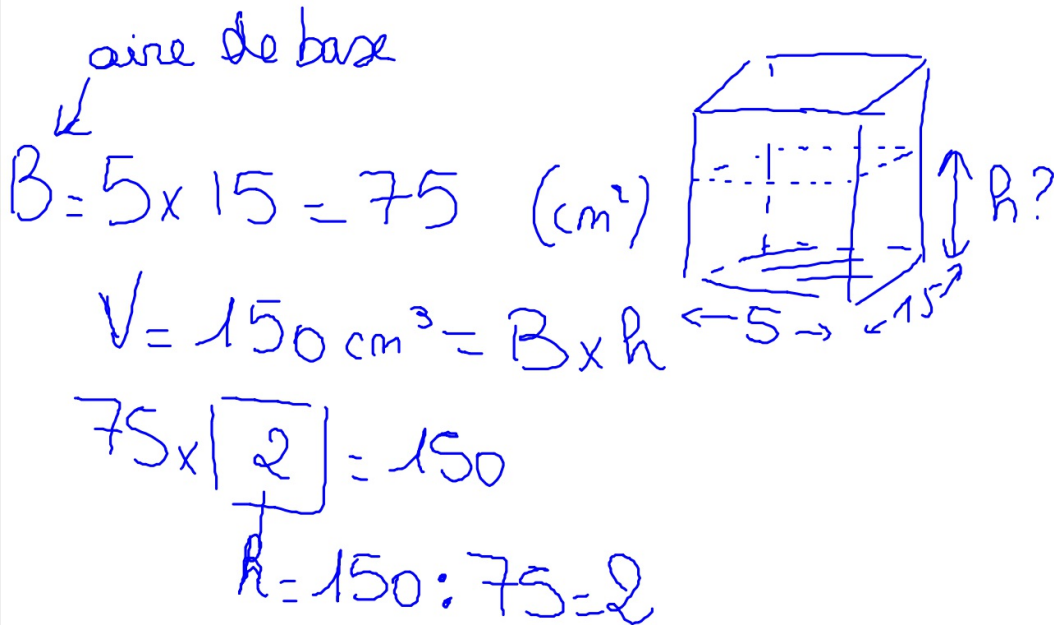 aire de base
B = 5 x 15 = 75 (cm²)
h?
V = 150 cm³ = B x h
5
15
75 x 2 = 150
h = 150 : 75 = 2